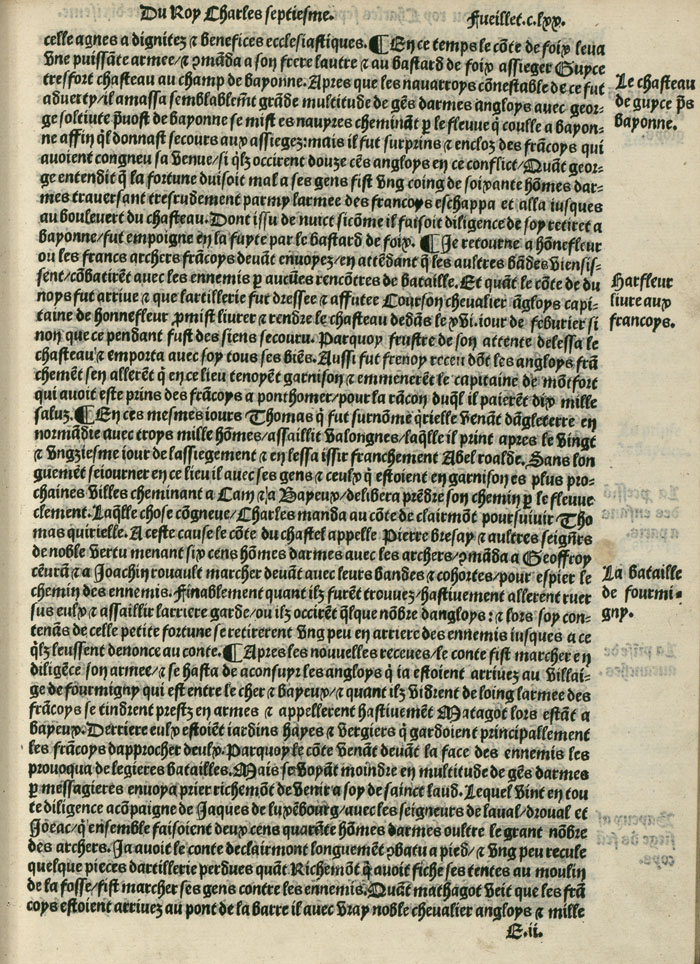 Du Roy Charles septiesme. Fueillet.c.lxx.
celle agnes a dignitez ⁊ benefices ecclesiastiques. ¶ En ce temps le cõte de foix leua
vne puissãte armee/⁊ ꝯmãda a son frere lautre ⁊ au bastard de foix assieger Guyce
tresfort chasteau au champ de bayonne. Apres que les nauarroys cõnestable de ce fut
aduerty/il amassa semblablemẽt grãde multitude de gẽs darmes angloys auec geor-
ge soltiute p̃uost de bayonne se mist es nauyres cheminãt ꝑ le fleuue q̃ coulle a bayon-
ne affin q̃l donnast secours aux assiegez:mais il fut surprins ⁊ encloz des frãcoys qui
auoient congneu sa venue/si q̃lz occirent douze cẽs angloys en ce conflict/Quãt geor-
ge entendit q̃ la fortune duisoit mal a ses gens fist vng coing de soixante hõmes dar-
mes trauersant tresrudement parmy larmee des francoys eschappa et alla iusques
au bouleuert du chasteau. Dont issu de nuict sicõme il faisoit diligence de soy retiret a
bayonne/fut empoigne en la fuyte par le bastard de foix. ¶ Je retourne a hõnefleur
ou les francs archers frãcoys deuãt enuoyez/en attẽdant q̃ les aultres bãdes viensis-
sent/cõbatirẽt auec les ennemis ꝑ aucũes rencõtres de bataille. Et quãt le cõte de du
noys fut arriue ⁊ que lartillerie fut dressee ⁊ affutee Courson cheualier ãgloys capi-
taine de honnefleur ꝓmist liurer ⁊ rendre le chasteau dedãs le xvi.iour de februier si
non que ce pendant fust des siens secouru. Parquoy frustre de son attente delessa le
chasteau ⁊ emporta auec soy tous ses biẽs. Aussi fut frenoy receu dõt les angloys frã
chemẽt sen allerẽt q̃ en ce lieu tenoyẽt garnison ⁊ emmenerẽt le capitaine de mõtfort
qui auoit este prins des frãcoys a ponthomer/pour la rãcon duq̃l il paierẽt dix mille
saluz. ¶ En ces mesmes iours Thomas q̃ fut surnõme q̃rielle venãt dãgleterre en
normãdie auec troys mille hõmes/assaillit valongnes/laq̃lle il print apres le vingt
⁊ vngziesme iour de lassiegement ⁊ en lessa issir franchement Abel roalde. Sans lon
guemẽt seiourner en ce lieu il auec ses gens ⁊ ceulx q̃ estoient en garnison es plus pro-
chaines villes cheminant a Cam ⁊ a Bayeux/delibera prẽdre son chemin ꝑ le fleuue
clement. Laq̃lle chose cõgneue/Charles manda au cõte de clairmõt poursuiuir Tho
mas quirielle. A ceste cause le cõte du chastel appelle Pierre bresay ⁊ aultres seigñrs
de noble vertu menant six cens hõmes darmes auec les archers/ꝯmãda a Geoffroy
cẽurã ⁊ a Joachin rouault marcher deuãt auec leurs bandes ⁊ cohortes/pour espier le
chemin des ennemis. Finablement quant ilz furẽt trouuez/hastiuement allerent ruer
sus eulx ⁊ assaillir larriere garde/ou ilz occirẽt q̃lque nõbre dangloys: ⁊ lors soy con-
tenãs de celle petite fortune se retirerent vng peu en arriere des ennemis iusques a ce
q̃lz leussent denonce au conte. ¶ Apres les nouuelles receues/le conte fist marcher en
diligẽce son armee/⁊ se hasta de aconsuyr les angloys q̃ ia estoient arriuez au villai-
ge de fourmigny qui est entre le cher ⁊ bayeux/⁊ quant ilz vidrent de loing larmee des
frãcoys se tindrent prestz en armes ⁊ appellerent hastiuemẽt Matagot lors estãt a
bayeux. Derriere eulx estoiẽt iardins hayes ⁊ vergiers q̃ gardoient principallement
les frãcoys dapprocher deulx. Parquoy le cõte venãt deuãt la face des ennemis les
prouoqua de legieres batailles. Mais se voyãt moindre en multitude de gẽs darmes
ꝑ messagieres enuoya prier richemõt de venir a soy de sainct laud. Lequel vint en tou
te diligence acõpaigne de Jaques de luxẽbourg/auec les seigneurs de laual/droual et
Joeac/q̃ ensemble faisoient deux cens quarãte hõmes darmes oultre le grant nõbre
des archers. Ja auoit le conte declairmont longuemẽt ꝯbatu a pied/⁊ vng peu recule
quelque pieces dartillerie perdues quãt Richemõt q̃ auoit fiche ses tentes au moulin
de la fosse/fist marcher ses gens contre les ennemis. Quãt mathagot veit que les frã
coys estoient arriuez au pont de la barre il auec vray noble cheualier angloys ⁊ mille
E.ii.
Le chasteau
de guyce p̃s
bayonne.
Harfleur
liure aux
francoys.
La bataille
de fourmi-
gny.